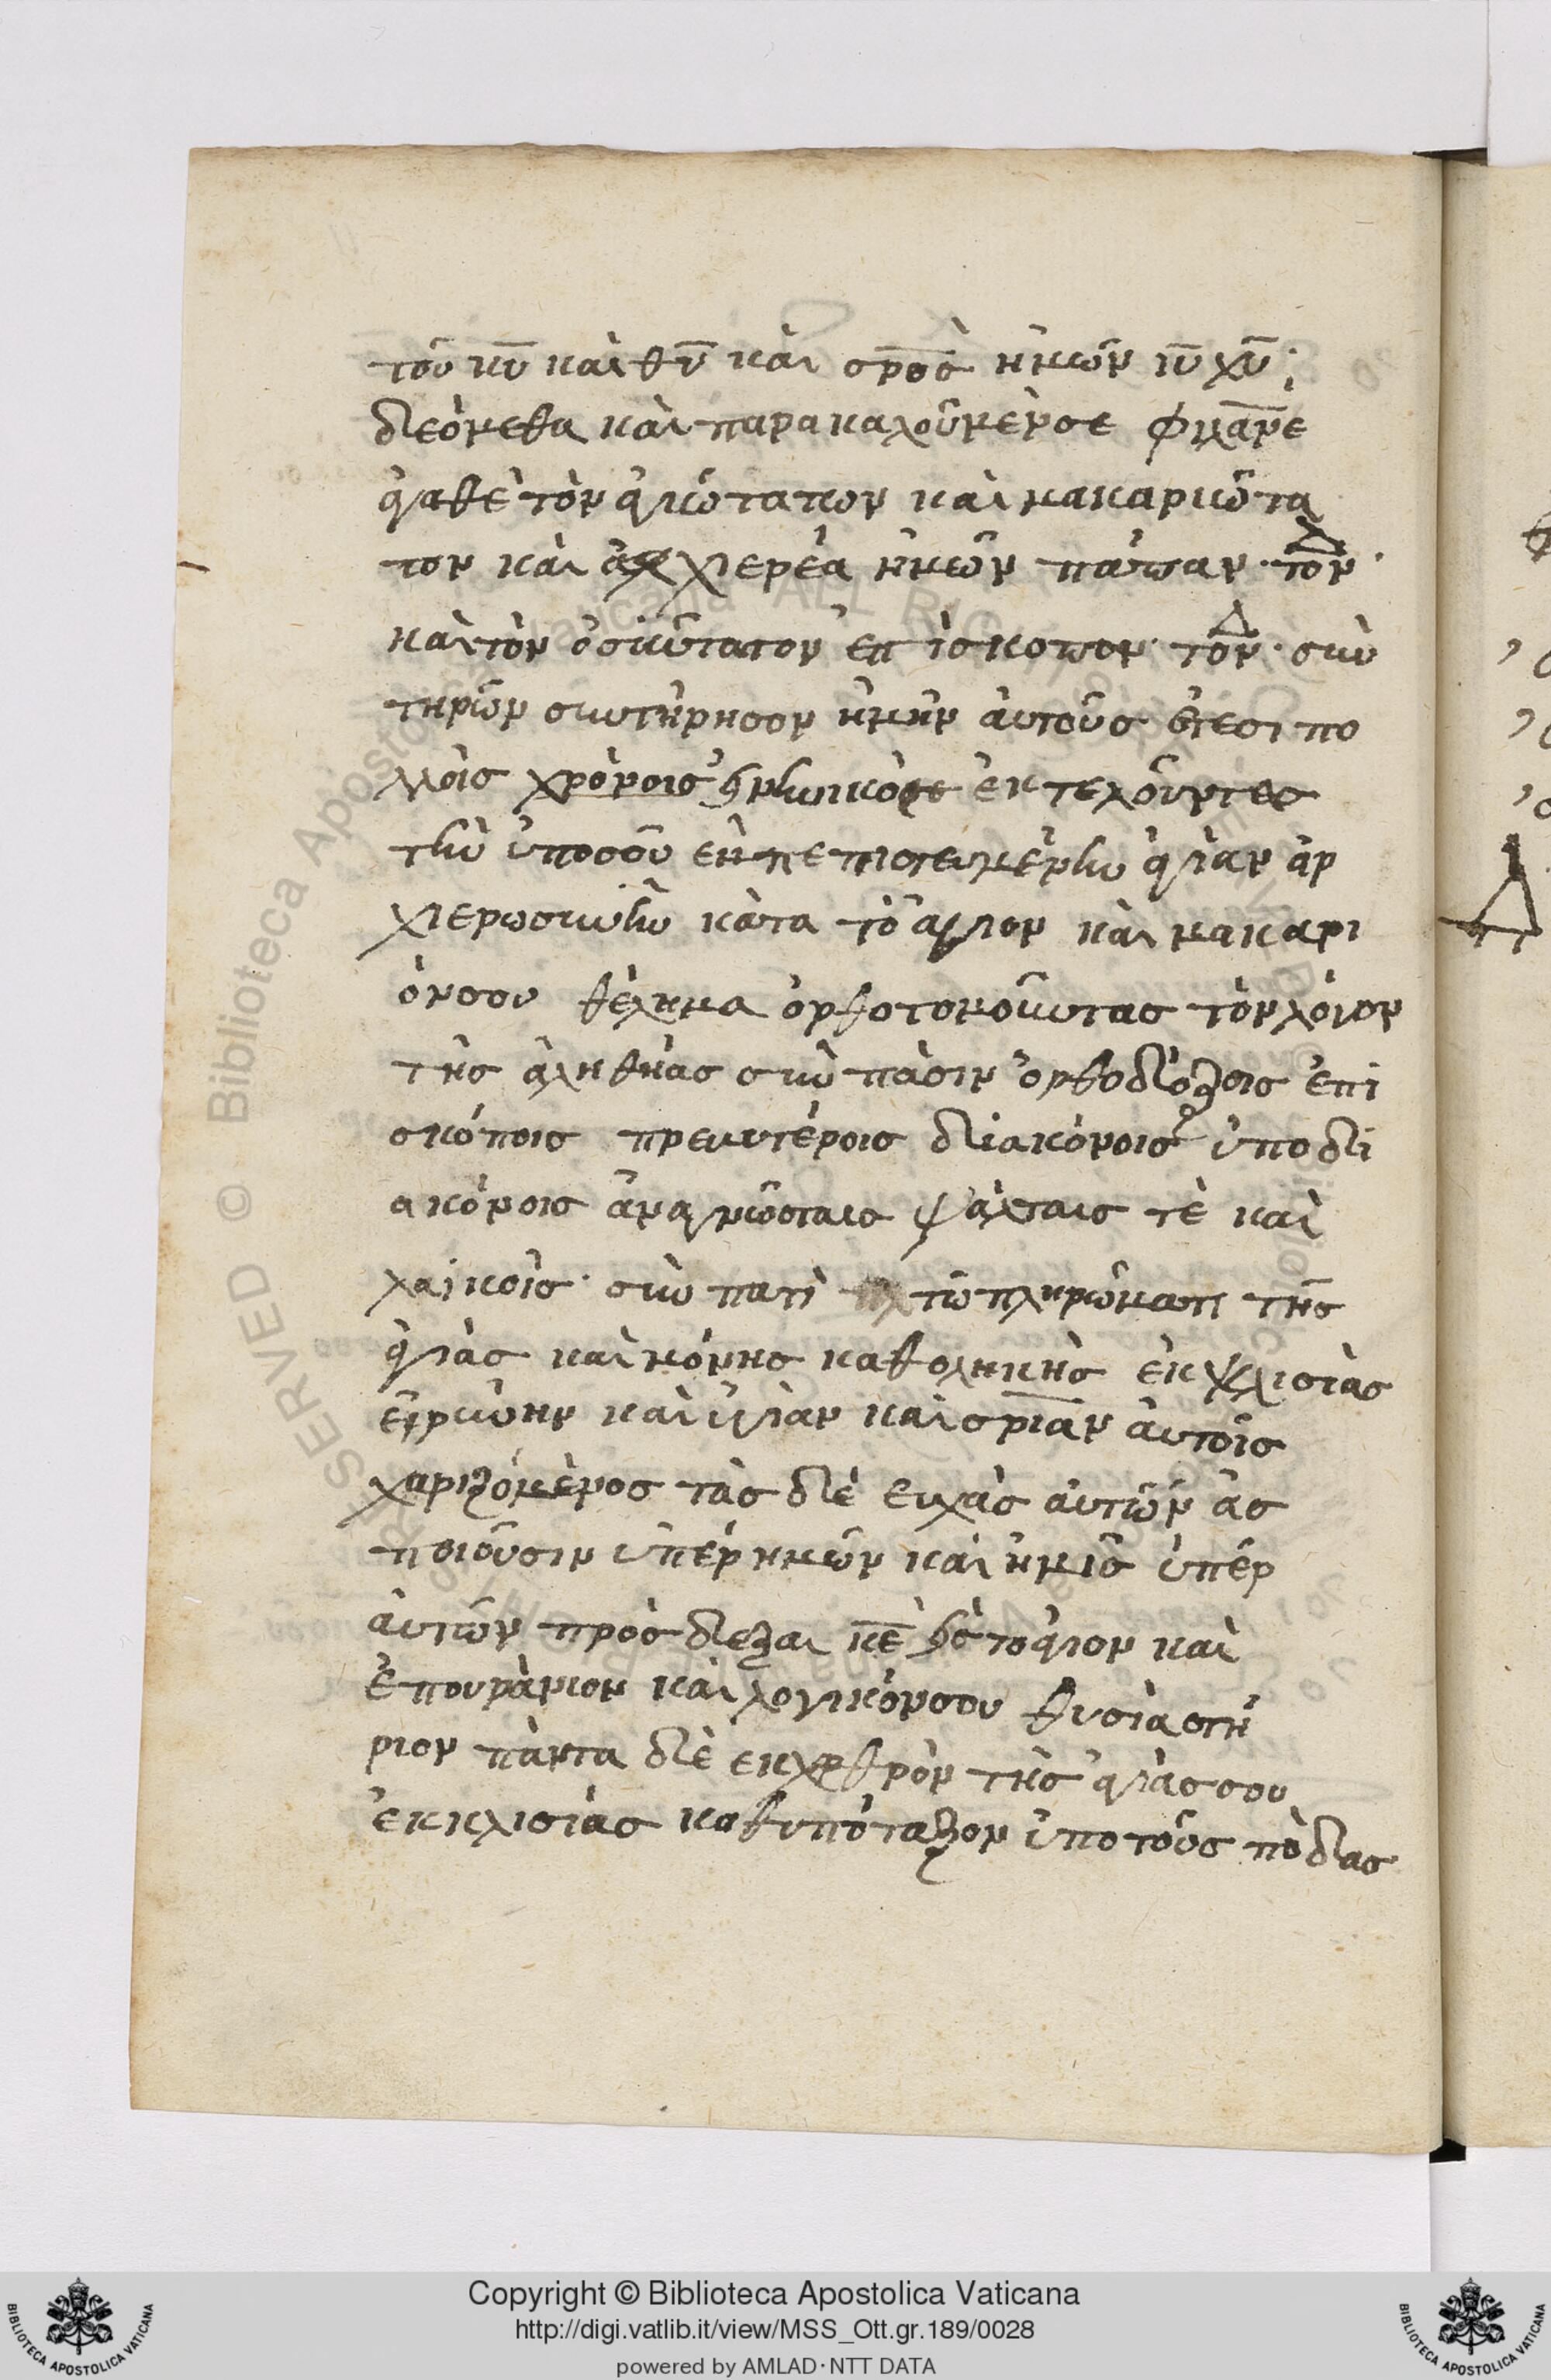 τοῦ κυ̅ καὶ θυ̅ καὶ σρ̅σ̅ ἡμῶν ιυ̅ χυ̅·
δεόμεθα καὶ παρακαλοῦμέν σε φιλα̅νε̅
ἀγαθὲ τὸν ἁγιώτατων καὶ μακαριώτα
τον καὶ ἀρχιερέα ἡμῶν πάπαν· τὸν Δ·
καὶ τὸν ὁσιώτατον ἐπίσκοπον· τὸν Δ· συν
τηρῶν συντήρησον ἡμὴν αὐτοὺς ἔτεσι πο
λλοῖς χρόνοις εἰρηνικὸς ἐκτελοῦντες
τὴν ὑπὸ σοῦ ἐνπεπιστευμένην ἁγίαν ἀρ
χιερωσύνην κάτα τὸ ἅγιον καὶ μακαρι
όν σου θέλημα ὀρθοτομοῦντας τὸν λόγον
τῆς ἀληθήας σὺν πάσιν ὀρθοδόξοις ἐπι
σκόποις πρευτέροις διακόνοις ὑποδι
ακόνοις ἀναγνώσταις ψάλταις τὲ καὶ
λαϊκοῖς· σὺν παντὶ τῶ πληρώματι τῆς
ἁγίας καὶ μόνης καθοληκῆς ἐκκλισίας
εἰρύνην καὶ ὑγίαν καὶ σρ̅ιαν αὐτοῖς
χαριζόμενος τὰς δὲ εὐχὰς αὐτῶν ἃς
ποιοῦσιν ὑπὲρ ἡμῶν καὶ ἡμῖς ὑπὲρ
αὐτῶν πρόσδεξαι κε̅ εἰς τὸ ἅγιον καὶ
ἐπουράνιον καὶ λογικόν σου θυσιαστή
ριον πάντα δὲ ἐκχθρὸν τῆς ἁγίας σου
ἐκκλισίας καθυπόταξον ὑπὸ τοὺς πόδας
Copyright © Biblioteca Apostolica Vaticana
http://digi.vatlib.it/view/MSS_Ott.gr.189/0028
powered by AMLAD·NTT DATA